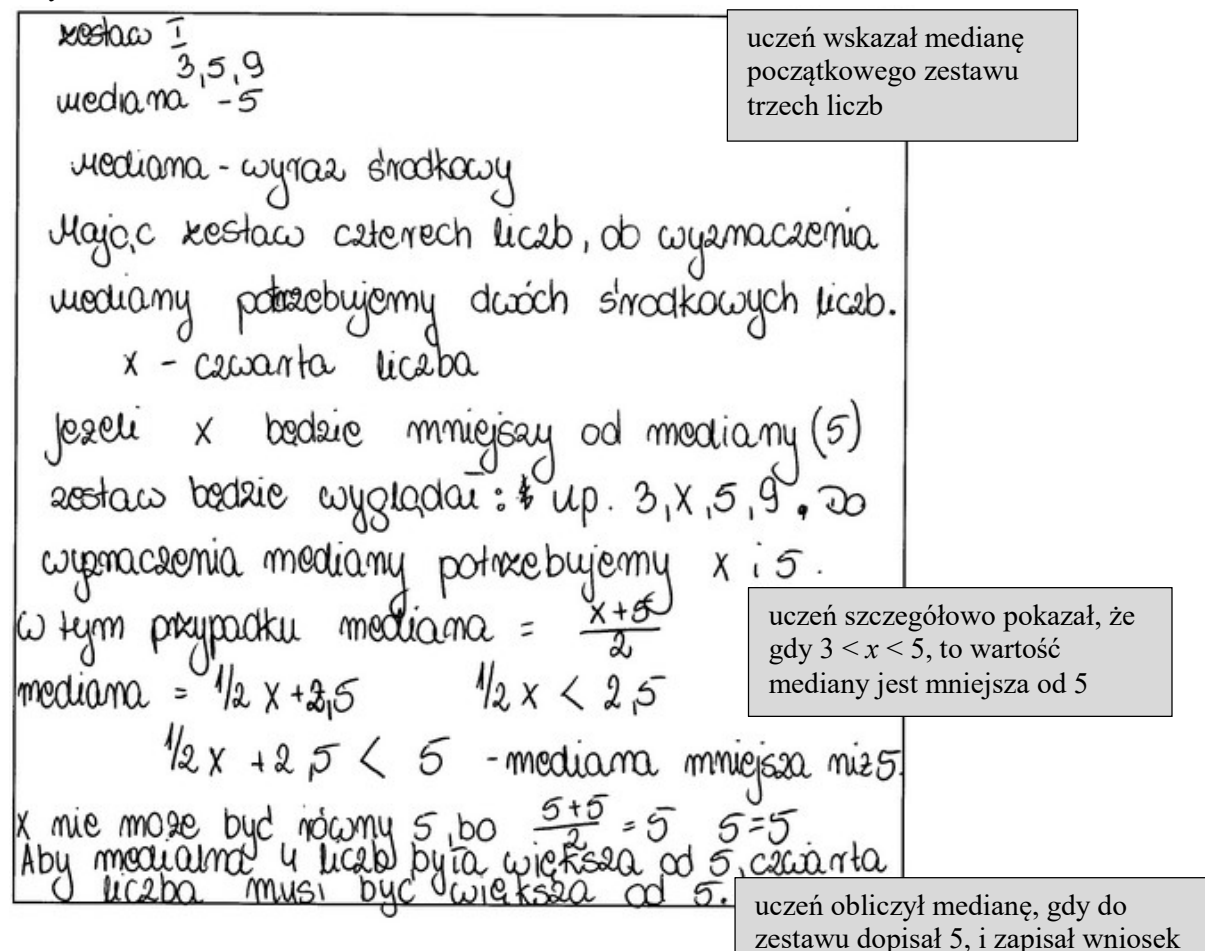 zestaw I
3, 5, 9
mediana - 5
uczeń wskazał medianę
początkowego zestawu
trzech liczb
mediana - wyraz środkowy
Mając zestaw czterech liczb, do wyznaczenia
mediany potrzebujemy dwóch środkowych liczb.
x - czwarta liczba
jeżeli x będzie mniejszy od mediany (5)
zestaw będzie wyglądał: np. 3, x, 5, 9. Do
wyznaczenia mediany potrzebujemy x i 5.
w tym przypadku mediana = \frac{x+5}{2}
mediana = 1/2 x + 2,5 1/2 x < 2,5
uczeń szczegółowo pokazał, że
gdy 3 < x < 5, to wartość
mediany jest mniejsza od 5
1/2 x + 2,5 < 5 - mediana mniejsza niż 5.
x nie może być równy 5, bo \frac{5+5}{2} = 5 5=5
Aby mediana 4 liczb była większa od 5, czwarta
liczba musi być większa od 5.
uczeń obliczył medianę, gdy do
zestawu dopisał 5, i zapisał wniosek